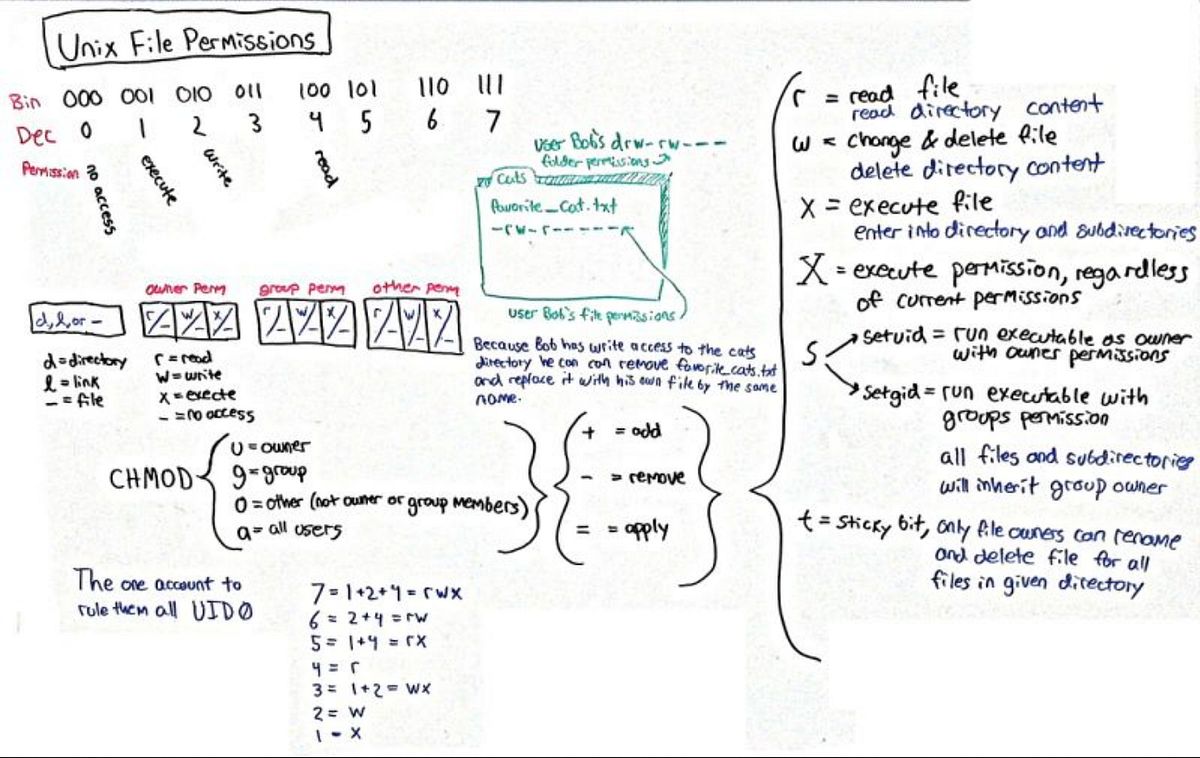 Unix File Permissions
Bin 000 001 010 011 100 101 110 111
Dec 0 1 2 3 4 5 6 7
Permission no access execute write read
user Bob's drw-rw----
folder permissions
Cats
favorite_cat.txt
-rw-r------
user Bob's file permissions
Because Bob has write access to the cats
directory he can can remove favorite_cats.txt
and replace it with his own file by the same
name.
owner perm group perm other perm
d,l,or - r/- w/- x/- r/- w/- x/- r/- w/- x/-
d=directory
l=link
-=file
r=read
w=write
x=execte
-=no access
CHMOD
u=owner
g=group
o=other (not owner or group members)
a=all users
+ = add
- = remove
= = apply
r = read file
read directory content
w = change & delete file
delete directory content
x = execute file
enter into directory and subdirectories
X = execute permission, regardless
of current permissions
s
setuid = run executable as owner
with owner permissions
setgid = run executable with
groups permission
all files and subdirectories
will inherit group owner
t = sticky bit, only file owners can rename
and delete file for all
files in given directory
The one account to
rule them all UID0
7=1+2+4=rwx
6=2+4=rw
5=1+4=rx
4=r
3=1+2=wx
2=w
1-x